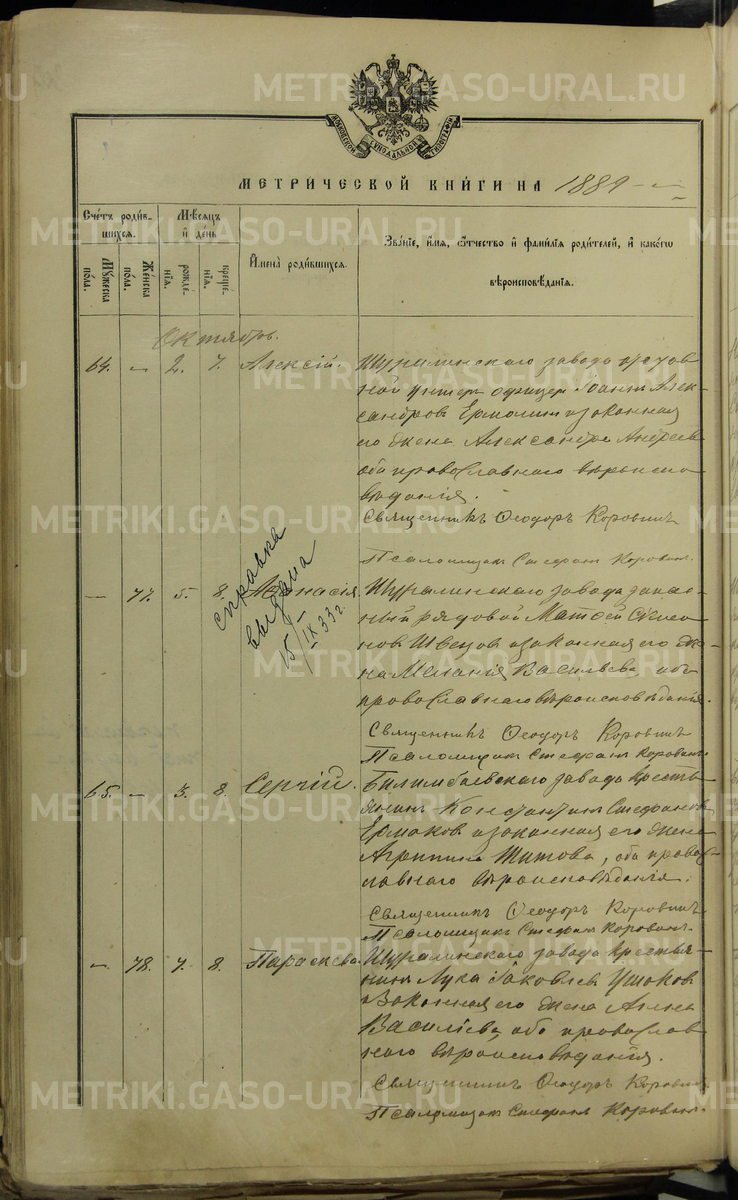 МОСКОВСКОЙ СѴНОДАЛЬНОЙ ТИПОГРАФІИ
МЕТРИ́ЧЕСКОЙ КНИ́ГИ НА 1889
Счетъ роди́вшихся.
Мѣсяцъ и день
Имена роди́вшихся.
Зва́ніе, и́мя, о́тчество и фами́лія роди́телей, и како́го вѣроисповѣ́данія.
Му́жеска по́ла.
Же́нска по́ла.
рожде́нія.
креще́нія.
Октябрь.
64. — 2. 7. Алексій. Шуралинскаго завода
унтеръ офицеръ Іоаннъ Алек-
сандровъ Ермолин и законная
его жена Александра Андреева
оба православнаго вѣроиспо
вѣданія.
Священникъ Ѳеодоръ Коровинъ
Псаломщикъ Стефанъ Коровинъ.
— 77. 5. 8. Аѳанасія. Шуралинскаго завода запас
ный рядовой Матѳей
новъ Швецовъ и законная его же
на Меланія Васильева, оба
православнаго вѣроисповѣданія.
справка
выдана
15/IX 33 г.
Священникъ Ѳеодоръ Коровинъ
Псаломщикъ Стефанъ Коровинъ.
65. — 3. 8. Сергій. Билимбаевскаго завода кресть
янинъ Константинъ Стефановъ
Ермаковъ и законная его жена
Агрипина Титова, оба право
славнаго вѣроисповѣданія.
Священникъ Ѳеодоръ Коровинъ
Псаломщикъ Стефанъ Коровинъ.
— 78. 7. 8. Параскева. Шуралинскаго завода крестья
нинъ Лука Іаковлевъ Ушаковъ
и законная его жена Анна
Василіева, оба православ
наго вѣроисповѣданія.
Священникъ Ѳеодоръ Коровинъ
Псаломщикъ Стефанъ Коровинъ.
METRIKI.GASO-URAL.RU